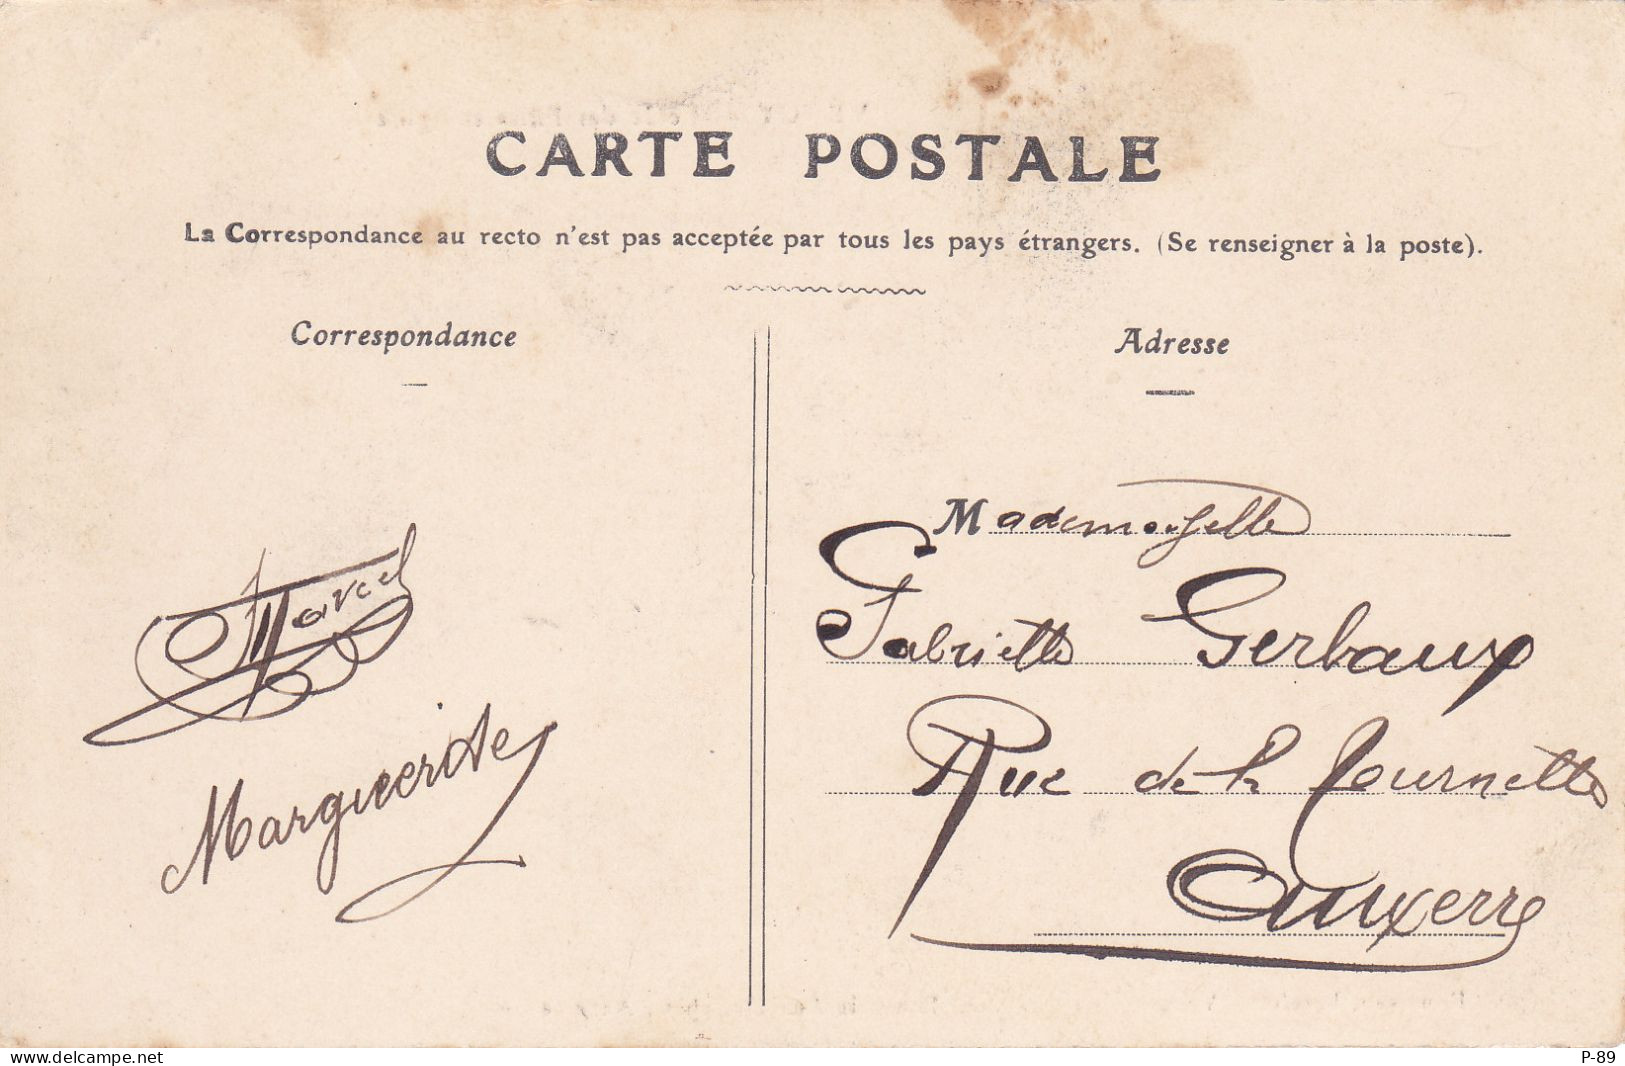 CARTE POSTALE
La Correspondance au recto n'est pas acceptée par tous les pays étrangers. (Se renseigner à la poste).
Correspondance
Marcel
Marguerite
Adresse
Mademoiselle
Gabrielle Gerbaux
Rue de la Tournelle
Auxerre
www.delcampe.net
P-89